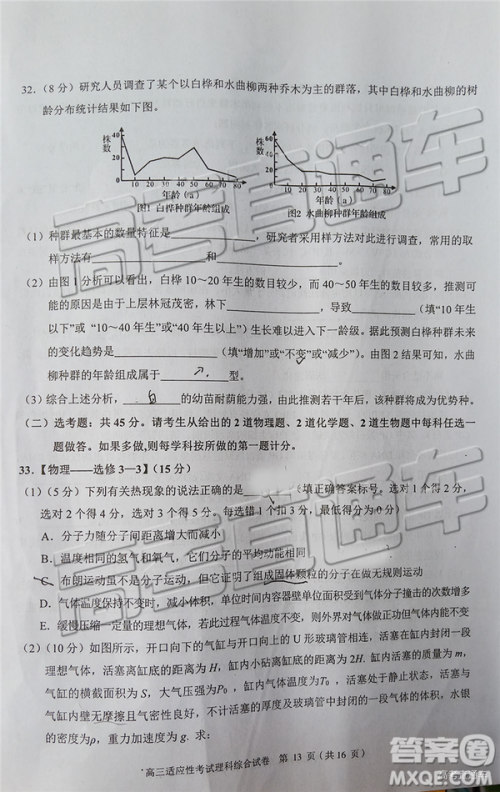 32.（8 分）研究人员调查了某个以白桦和水曲柳两种乔木为主的群落，其中白桦和水曲柳的树
龄分布统计结果如下图。
株数
40
30
20
10
10 20 30 40 50 60 70 80
年龄（a）
图1 白桦种群年龄组成
株数
60
40
20
10 20 30 40 50 60 70 80
年龄（a）
图2 水曲柳种群年龄组成
（1）种群最基本的数量特征是____________，研究者采用样方法对此进行调查，常用的取
样方法有____________和____________。
（2）由图 1 分析可以看出，白桦 10～20 年生的数目较少，而 40～50 年生的数目较多，推测可
能的原因是由于上层林冠茂密，林下____________，导致____________（填“10 年生
以下”或“10～40 年生”或“40 年生以上”）个体难以进入下一龄级。据此预测白桦种群未来
的变化趋势是____________（填“增加”或“不变”或“减少”）。由图 2 结果可知，水曲
柳种群的年龄组成属于____________型。
（3）综合上述分析，____________的幼苗耐荫能力强，推测该种群将成为优势种。
（二）选考题：共 45 分。请考生从给出的 2 道物理题、2 道化学题、2 道生物题中每科任选一
题做答。如果多做,则每学科按所做的第一题计分。
33.【物理——选修 3—3】（15 分）
（1）（5 分）下列有关热现象的说法正确的是____________。（填正确答案标号。选对 1 个得 2 分，
选对 2 个得 4 分，选对 3 个得 5 分。每选错 1 个扣 3 分，最低得分为 0 分）
A．分子力随分子间距增大而减小
B．温度相同的氢气和氧气，它们分子的平均动能相同
C．布朗运动虽不是分子运动，但它证明了组成固体颗粒的分子在做无规则运动
D．气体温度保持不变时，减小体积，可以使单位时间内气体分子撞击的次数增多
E．缓慢压缩一定量理想气体，若此过程气体温度不变，则外界对气体做正功
（2）（10 分）如图所示，开口向下的气缸与开口向上的 U 形玻璃管相连，在气缸内封闭一段
理想气体，活塞离缸底的距离为 H，缸内小砧离缸底的距离为 2H，活塞的质量为 m，
气缸的横截面积为 S，大气压强为P₀，缸内气体的温度为T₀，活塞处于静止状态，活塞与
气缸内壁无摩擦且气密性完好，不计小砧的厚度及玻璃管中封闭的一段气体的体积，水
的密度为ρ，重力加速度为
高三适应性考试理科综合试卷 第 13 页（共 16 页）
高考直通车
高考直通车
高考直通车
答案圈